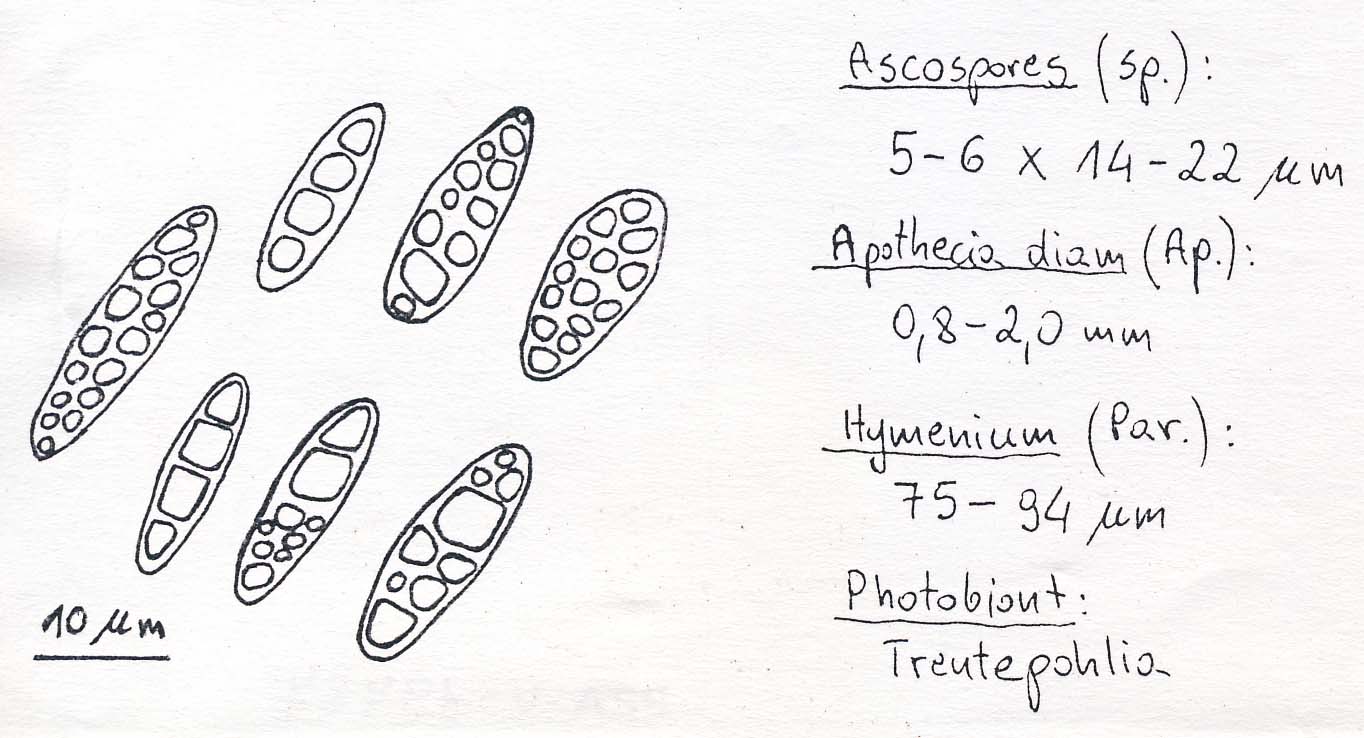 Ascospores (sp.):
5-6 x 14-22 µm
Apothecia diam (Ap.):
0,8-2,0 mm
Hymenium (Par.):
75-94 µm
Photobiont:
Trentepohlia
10 µm